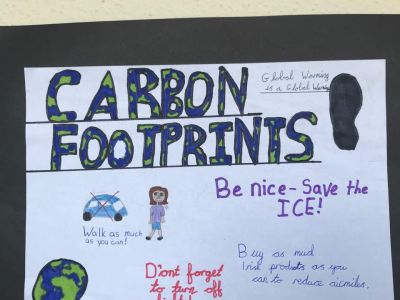 CARBON
Global Warming
is a Global Warning
FOOTPRINTS
Be nice - Save the
ICE!
Walk as much
as you can!
D'ont forget
to turn off
Buy as mud
Irish products as you
can to reduce airmiles.